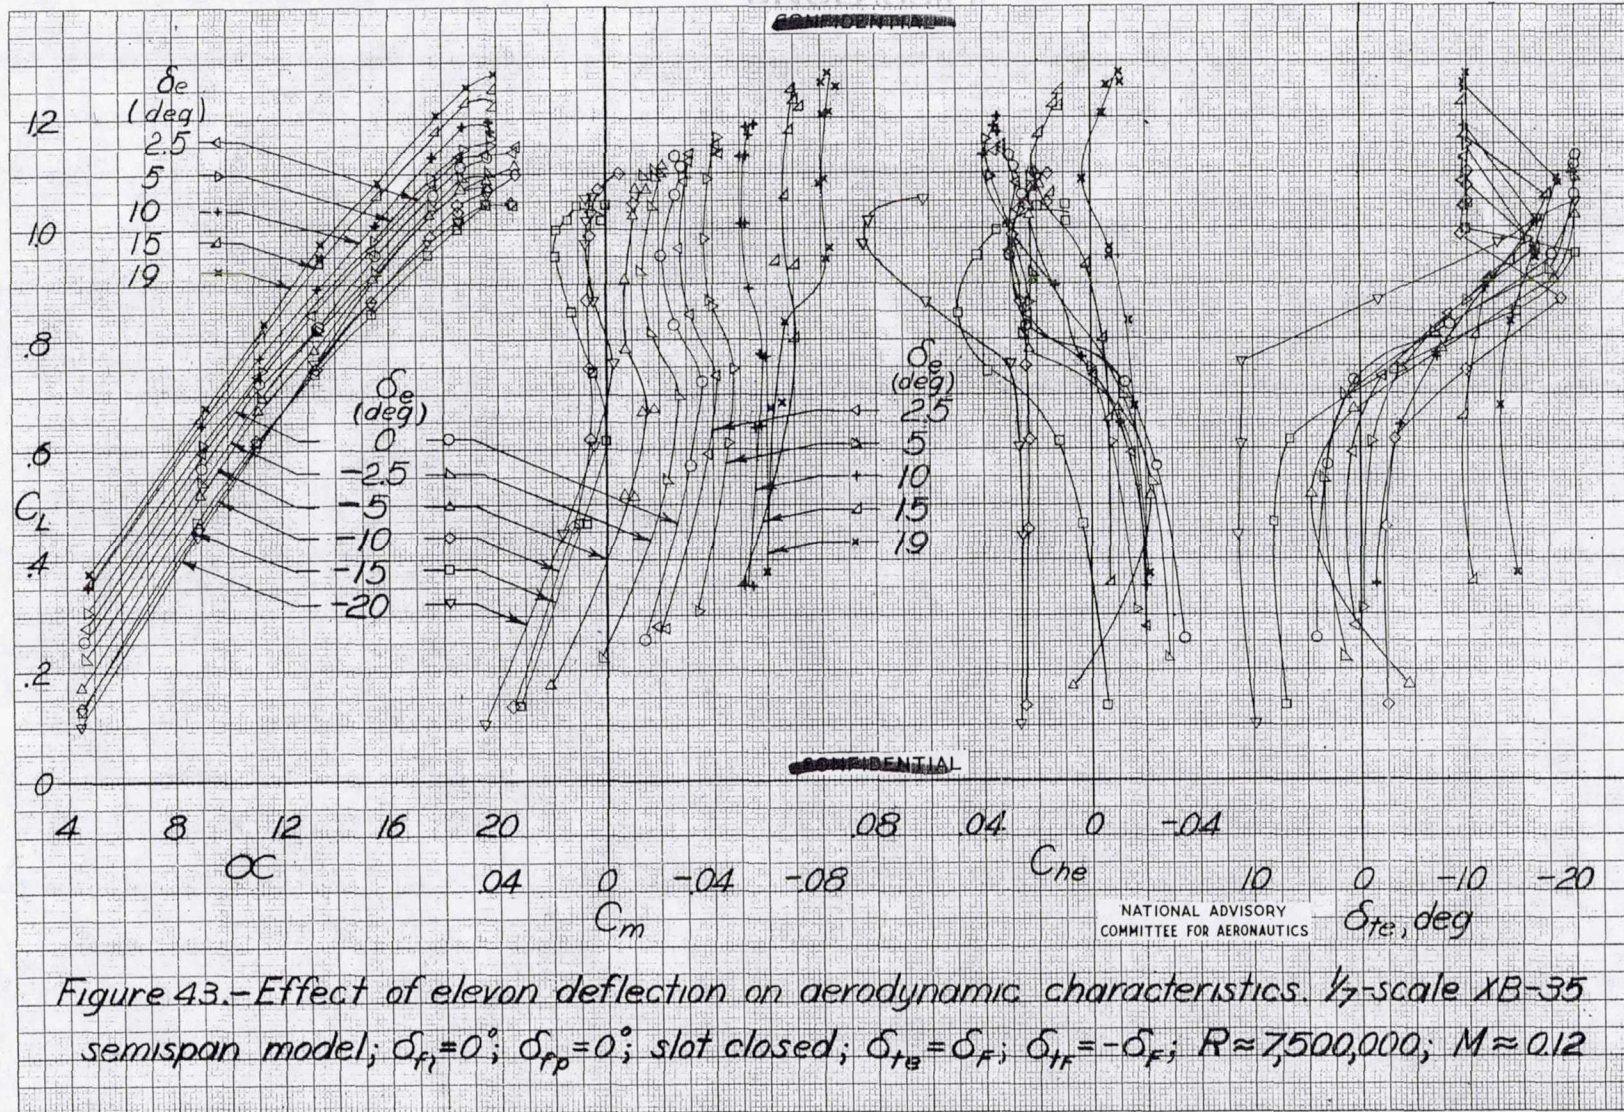 CONFIDENTIAL
δe
(deg)
2.5
5
10
15
19
1.2
1.0
.8
.6
CL
.4
.2
0
δe
(deg)
0
-2.5
-5
-10
-15
-20
δe
(deg)
2.5
5
10
15
19
CONFIDENTIAL
4 8 12 16 20
α
.04 0 -.04 -.08
Cm
.08 .04 0 -.04
Che
10 0 -10 -20
δte, deg
NATIONAL ADVISORY
COMMITTEE FOR AERONAUTICS
Figure 43.-Effect of elevon deflection on aerodynamic characteristics. 1/7-scale XB-35
semispan model; = 0°; δfp=0°; slot closed; R≈7,500,000; M≈0.12